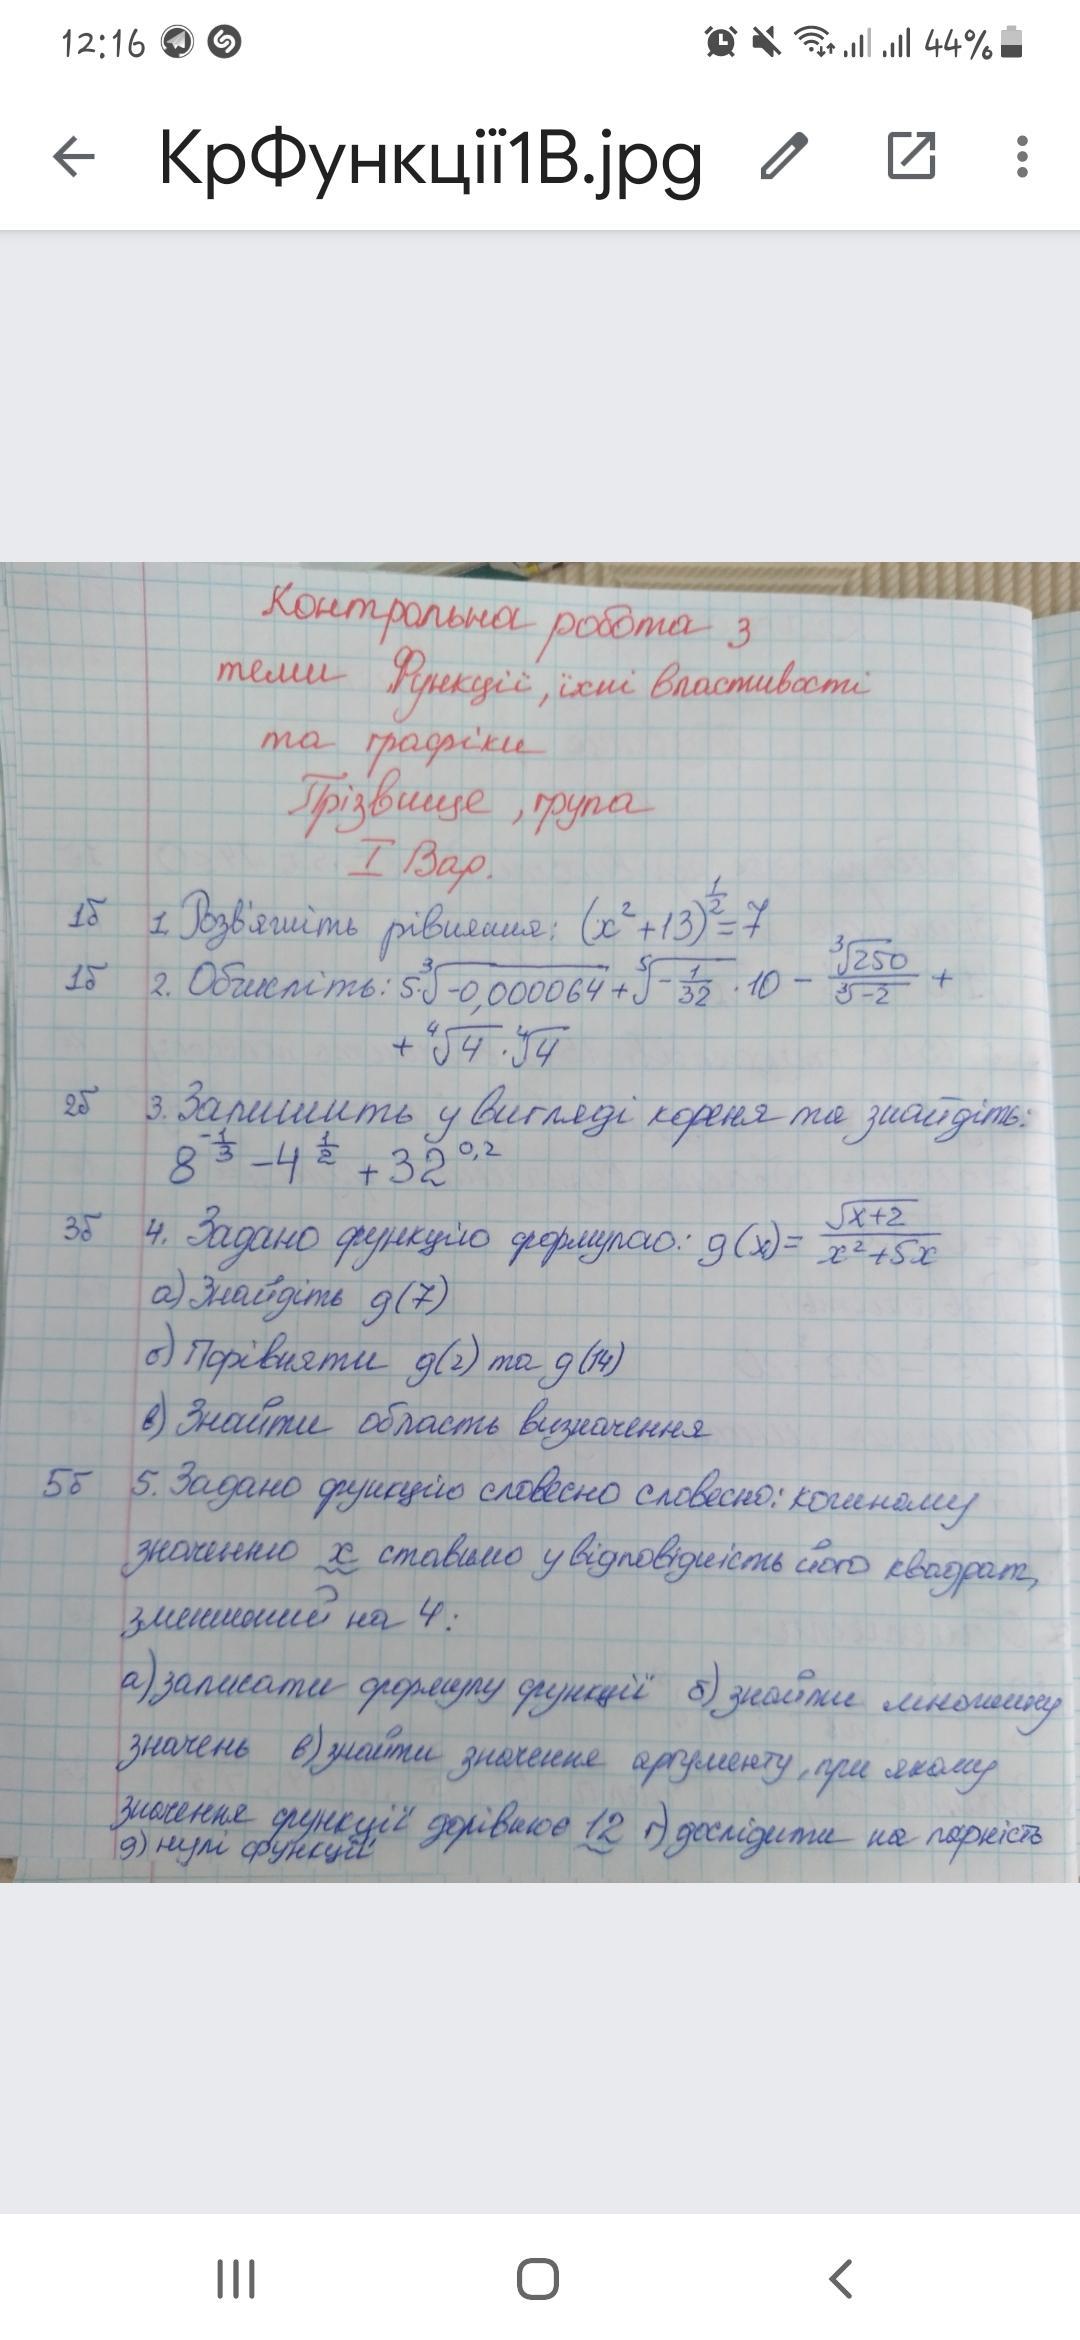 12:16 44%
КрФункції1В.jpg
Контрольна робота з
теми Функції, їхні властивості
та графіки
Прізвище, група
I Вар.
1б 1. Розв'яжіть рівняння: (x²+13)^{1/2}=7
1б 2. Обчисліть: 5·∛-0,000064 + ⁵√-1/32 · 10 - ∛250/∛-2 +
+ ⁴√4 · ⁴√4
2б 3. Запишить у вигляді кореня та знайдіть:
8^{-1/3} - 4^{1/2} + 32^{0,2}
3б 4. Задано функцію формулою: g(x)= √x+2/x²+5x
а) Знайдіть g(7)
б) Порівняти g(2) та g(14)
в) Знайти область визначення
5б 5. Задано функцію словесно словесно: кожному
значенню x ставимо у відповідність його квадрат,
зменшений на 4:
а) записати формулу функції б) знайти множину
значень в) знайти значення аргументу, при якому
значення функції дорівнює 12 г) дослідити на парність
д) нулі функції